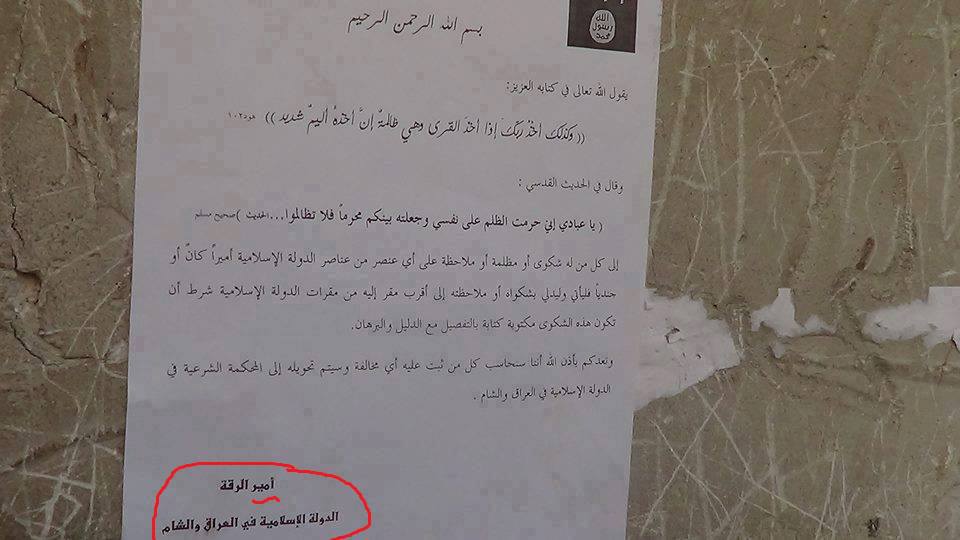 الله
رسول
محمد
بسم الله الرحمن الرحيم
يقول الله تعالى في كتابه العزيز:
(( وكذلك أخْذ ربّكَ إذا أخذَ القرى وهي ظالمةٌ إنَّ أخذهُ أليمٌ شديد )) هود١٠٢
وقال في الحديث القدسي :
( يا عبادي إني حرمت الظلم على نفسي وجعلته بينكم محرماً فلا تظالموا...الحديث )صحيح مسلم
إلى كل من له شكوى أو مظلمة أو ملاحظة على أي عنصر من عناصر الدولة الإسلامية أميراً كانً أو
جندياً فليأتي وليدلي بشكواه أو ملاحظته إلى أقرب مقر إليه من مقرات الدولة الإسلامية شرط أن
تكون هذه الشكوى مكتوبة كتابة بالتفصيل مع الدليل والبرهان.
ونعدكم بأذن الله أننا سنحاسب كل من ثبت عليه أي مخالفة وسيتم تحويله إلى المحكمة الشرعية في
الدولة الإسلامية في العراق والشام .
أمير الرقة
الدولة الإسلامية في العراق والشام